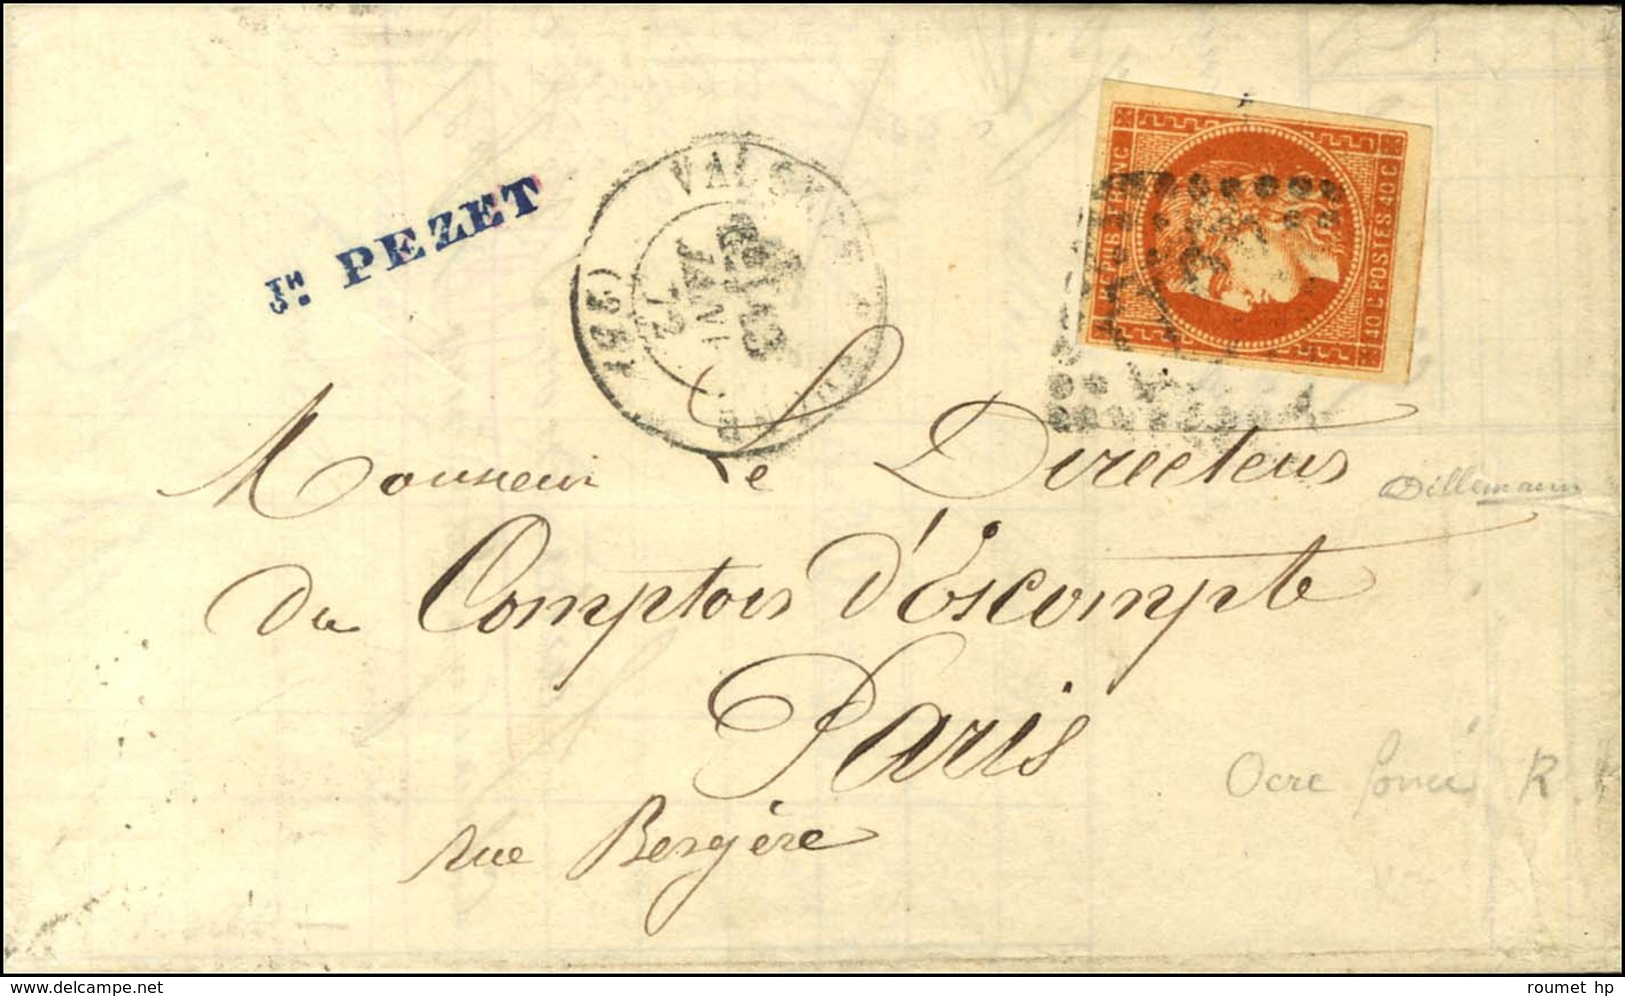 Jh PEZET
(25)
JANV.
72
REPUB FRANC
40 C POSTES 40 C
Monsieur Le Directeur
Dillemann
du Comptoir d'Escompte
Paris
Ocre foncé R
rue Bergère
delcampe.net
roumet hp